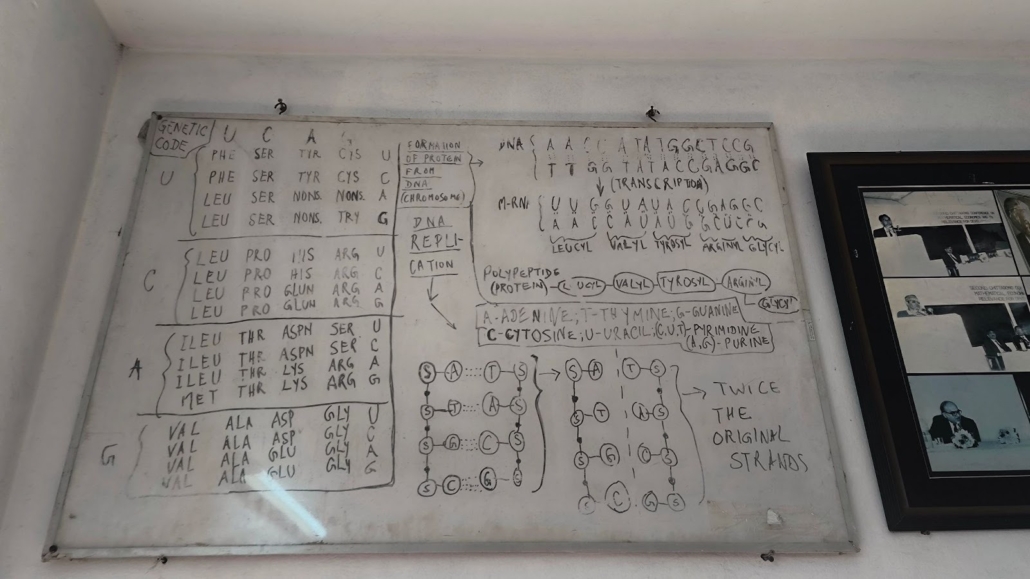 GENETIC CODE
U C A G
U
PHE SER TYR CYS U
PHE SER TYR CYS C
LEU SER NONS. NONS. A
LEU SER NONS. TRY G
C
LEU PRO HIS ARG U
LEU PRO HIS ARG C
LEU PRO GLUN ARG A
LEU PRO GLUN ARG G
A
ILEU THR ASPN SER U
ILEU THR ASPN SER C
ILEU THR LYS ARG A
MET THR LYS ARG G
G
VAL ALA ASP GLY U
VAL ALA ASP GLY C
VAL ALA GLU GLY A
VAL ALA GLU GLY G
FORMATION
OF PROTEIN
FROM
DNA
(CHROMOSOME)
DNA
REPLI-
CATION
DNA
A A C C A T A T G G C T C C G
T T G G T A T A C C G A G G C
(TRANSCRIPTION)
M-RNA
U U G G U A U A C C G A G G C
A A C C A U A U G G C U C C G
LEUCYL VALYL TYROSYL ARGINYL GLYCYL
POLYPEPTIDE
(PROTEIN)-LEUCYL-VALYL-TYROSYL-ARGINYL
GLYCYL
A-ADENINE; T-THYMINE; G-GUANINE
C-CYTOSINE; U-URACIL; (C,U,T)-PYRIMIDINE
(A,G)-PURINE
S A T S
S T A S
S G C S
S C G S
S A T S
S T A S
S G C S
S C G S
TWICE
THE
ORIGINAL
STRANDS